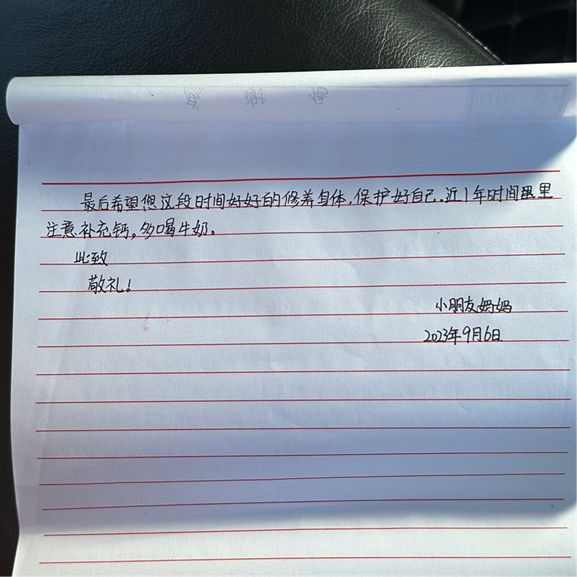 最后希望您这段时间好好的修养身体,保护好自己.近1年时间里
注意补充钙,多喝牛奶。
此致
敬礼!
小朋友妈妈
2023年9月6日